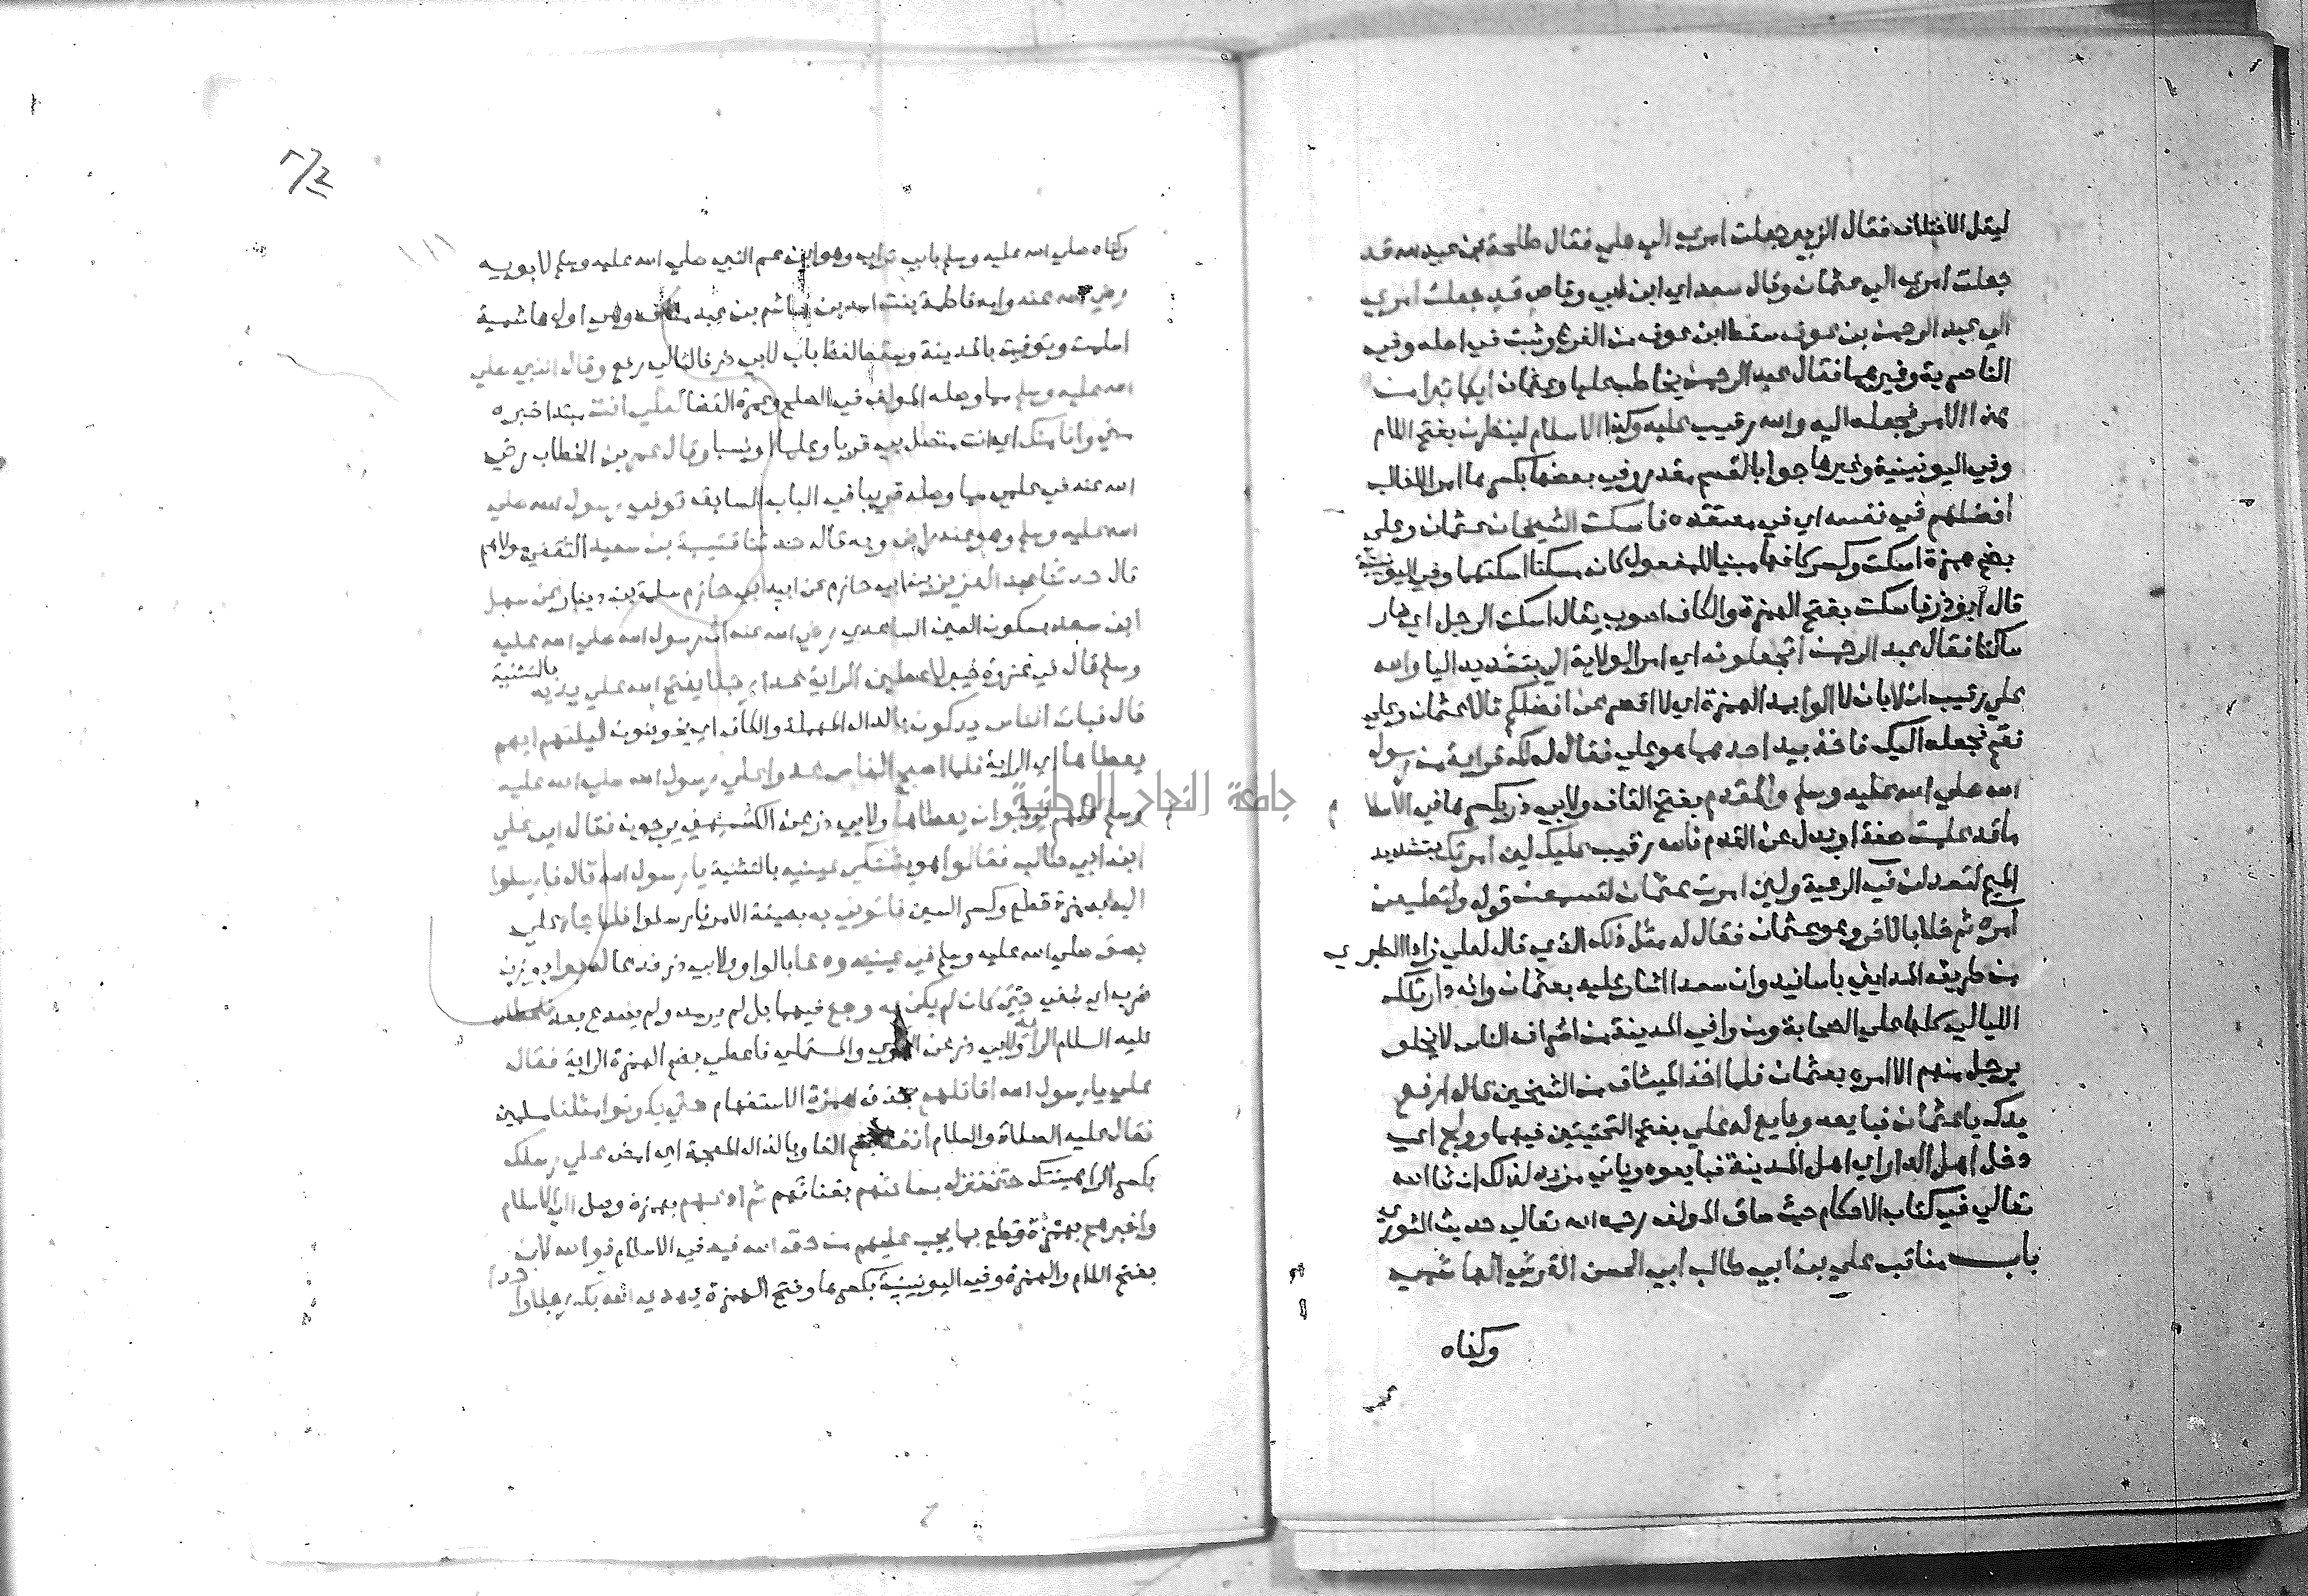 ليقل الاختلاف فقال الزبير جعلت امري الي علي فقال طلحة بن عبيد الله قد
جعلت امري الي عثمان وقال سعد اي ابن ابي وقاص قد جعلت امري
الي عبد الرحمن بن عوف سقط ابن عوف من الفرع وثبت في اصله وفي
الناصرية وغيرهما فقال عبد الرحمن يخاطب عليا وعثمان ايكما تبرا من
هذا الامر فنجعله اليه والله رقيب عليه وكذا الاسلام لينظرن بفتح اللام
وفي اليونينية وغيرها جوابا لقسم مقدر وفي بعضها بكسرها امر الغايب
افضلهم في نفسه اي في معتقده فاسكت الشيخان عثمان وعلي
بضم همزة اسكت وكسر كافها مبنيا للمفعول كان مسكتا اسكتهما وفي اليونينية
قال ابو ذر فاسكت بفتح الهمزة والكاف اصوب يقال اسكت الرجل اي صار
ساكتا فقال عبد الرحمن افتجعلونه اي امر الولاية الي بتشديد اليا والله
علي رقيب ان لا بان لا الوا بمد الهمزة اي لا اقصر عن افضلكم قالا عثمان وعلي
نعم نجعله اليك فاخذ بيد احدهما هو علي فقال له لك قرابة من رسول
الله صلي الله عليه وسلم والقدم بفتح القاف ولابي ذر بكسرها في الاسلام
ما قد علمت صفة او بدل عن القدم فالله رقيب عليك لين امرتك بتشديد
الميم لتعدلن في الرعية ولين امرت عثمان لتسمعن قوله ولتطيعن
امره ثم خلا بالاخر وهو عثمان فقال له مثل ذلك الذي قال لعلي زاد الطبري
من طريق المدايني باسانيده ان سعدا اشار عليه بعثمان وانه دار تلك
الليالي كلها علي الصحابة ومن وافي المدينة من اشراف الناس لا يخلو
برجل منهم الا امره بعثمان فلما اخذ الميثاق من الشيخين قال ارفع
يدك يا عثمان فبايعه وبايع له علي بفتح التحتيتين فيهما وولج اي
دخل اهل الدار اي اهل المدينة فبايعوه وياتي مزيد لذلك ان شا الله
تعالي في كتاب الاحكام حيث ساق المولف رحمه الله تعالي حديث الثوري
باب مناقب علي بن ابي طالب ابي الحسن القرشي الهاشمي
وكناه
وكناه صلي الله عليه وسلم بابي تراب وهو ابن عم النبي صلي الله عليه وسلم لابويه
رضي الله عنه وامه فاطمة بنت اسد بن هاشم بن عبد مناف وهي اول هاشمية
اسلمت وتوفيت بالمدينة وسقط لفظ باب لابي ذر فالتالي رفع وقال النبي صلي
الله عليه وسلم مما وصله المولف في الصلح وعمرة القضا لعلي انت مبتدا خبره
مني وانا منك اي انت متصل بي قربا وعلما ونسبا وقال عمر بن الخطاب رضي
الله عنه في علي مما وصله قريبا في الباب السابق توفي رسول الله صلي
الله عليه وسلم وهو عنه راض وبه قال حدثنا قتيبة بن سعيد الثقفي مولاهم
قال حدثنا عبد العزيز بن ابي حازم عن ابيه ابي حازم سلمة بن دينار عن سهل
ابن سعد بسكون العين الساعدي رضي الله عنه ان رسول الله صلي الله عليه
وسلم قال في غزوة خيبر لاعطين الراية غدا رجلا يفتح الله علي يديه بالتثنية
قال فبات الناس يدكون بالدال المهملة والكاف اي يخوضون ليلتهم ايهم
يعطاها اي الراية فلما اصبح الناس غدوا علي رسول الله صلي الله عليه
وسلم كلهم يرجوا ان يعطاها ولابي ذر عن الكشميهني يرجون فقال اين علي
ابن ابي طالب فقالوا هو يشتكي عينيه بالتثنية يا رسول الله قال فارسلوا
اليه بهمزة قطع وكسر السين فاتوني به بصيغة الامر فارسلوا فلما جاء علي
بصق صلي الله عليه وسلم في عينيه ودعا بالواو ولابي ذر فدعا له
فبرا اي شفي حتي كان لم يكن به وجع فيهما بل لم يرمد ولم يصدع بعد فاعطاه
عليه السلام الراية ولابي ذر عن الحموي والمستملي فاعطي بضم الهمزة الراية فقال
علي يا رسول الله اقاتلهم بحذف همزة الاستفهام حتي يكونوا مثلنا مسلمين
فقال عليه الصلاة والسلام انفذ بضم الفا وبالذال المعجمة اي امض علي رسلك
بكسر الرا هينتك حتي تنزل بساحتهم بفنائهم ثم ادعهم بهمزة وصل الي الاسلام
واخبرهم بهمزة قطع بما يجب عليهم من حق الله فيه في الاسلام فوالله لان
بفتح اللام والهمزة وفي اليونينية بكسرها وفتح الهمزة يهدي الله بك رجلا واحدا
جامعة النجاح الوطنية